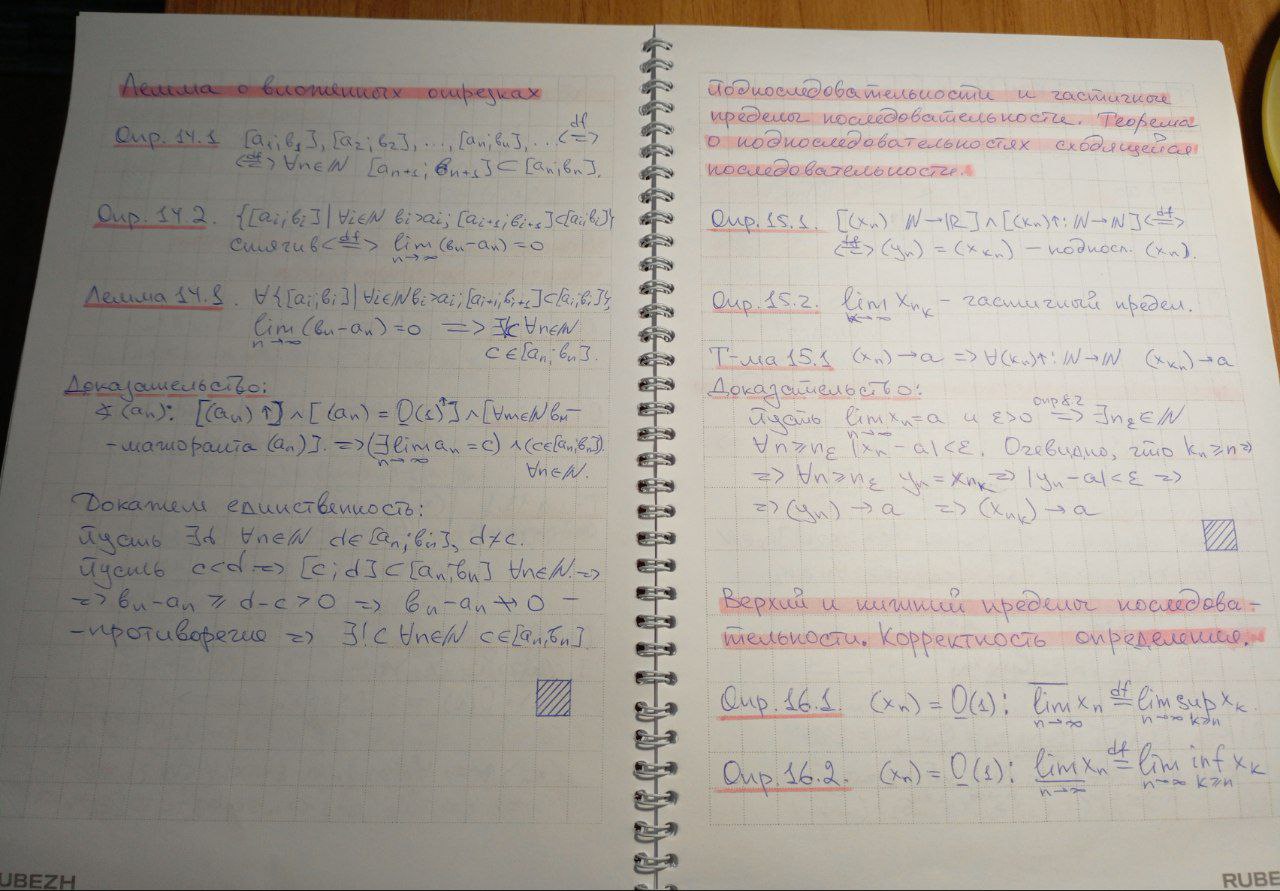 Лемма о вложенных отрезках
Опр. 14.1 [a₁;b₁], [a₂;b₂], ..., [aₙ;bₙ], ... <=df=>
<=df=> ∀n∈ℕ [aₙ₊₁; bₙ₊₁]⊂[aₙ;bₙ].
Опр. 14.2. {[aᵢ;bᵢ] | ∀i∈ℕ bᵢ>aᵢ; [aᵢ₊₁;bᵢ₊₁]⊂[aᵢ;bᵢ]}
стягив <=df=> lim(n→∞) (bₙ-aₙ)=0
Лемма 14.1. ∀{[aᵢ;bᵢ] | ∀i∈ℕ bᵢ>aᵢ; [aᵢ₊₁;bᵢ₊₁]⊂[aᵢ;bᵢ]},
lim(n→∞) (bₙ-aₙ)=0 => ∃!c ∀n∈ℕ
c∈[aₙ;bₙ].
Доказательство:
∢ (aₙ): [(aₙ)↑] ∧ [(aₙ) = O(1)↑] ∧ [∀m∈ℕ bₘ-
-мажоранта (aₙ)]. => (∃lim(n→∞) aₙ=c) ∧ (c∈[aₙ;bₙ])
∀n∈ℕ.
Докажем единственность:
Пусть ∃d ∀n∈ℕ d∈[aₙ;bₙ], d≠c.
Пусть c<d => [c;d]⊂[aₙ;bₙ] ∀n∈ℕ =>
=> bₙ-aₙ ⩾ d-c>0 => bₙ-aₙ ↛ 0 -
-противоречие => ∃!c ∀n∈ℕ c∈[aₙ;bₙ]
UBEZH
Подпоследовательности и частичные
пределы последовательности. Теорема
о подпоследовательностях сходящейся
последовательности.
Опр. 15.1. [(xₙ) ℕ→ℝ] ∧ [(kₙ)↑: ℕ→ℕ] <=df=>
<=df=> (yₙ) = (x_kₙ) - подпосл. (xₙ).
Опр. 15.2. lim(k→∞) x_nₖ - частичный предел.
Т-ма 15.1 (xₙ)→a => ∀(kₙ)↑: ℕ→ℕ (x_kₙ)→a
Доказательство:
Пусть lim(n→∞) xₙ=a и ε>0 =опр 8.2=> ∃n_ε∈ℕ
∀n⩾n_ε |xₙ-a|<ε. Очевидно, что kₙ⩾n =>
=> ∀n⩾n_ε yₙ = x_nₖ => |yₙ-a|<ε =>
=> (yₙ)→a => (x_nₖ)→a
Верхий и нижний пределы последова-
тельности. Корректность определения.
Опр. 16.1. (xₙ) = O(1): l̅i̅m̅(n→∞) xₙ =df= lim(n→∞) sup(k⩾n) xₖ.
Опр. 16.2. (xₙ) = O(1): l̲i̲m̲(n→∞) xₙ =df= lim(n→∞) inf(k⩾n) xₖ
RUBE